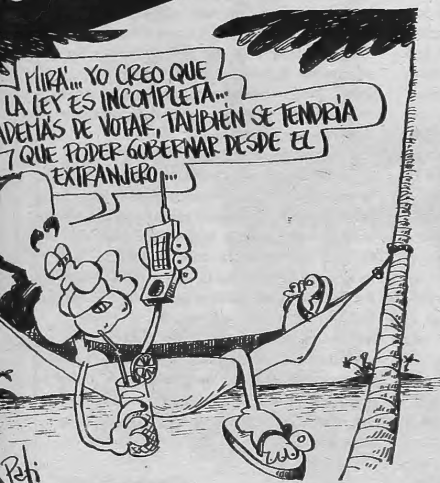 MIRÁ... YO CREO QUE
LA LEY ES INCOMPLETA...
ADEMÁS DE VOTAR, TAMBIÉN SE TENDRÍA
QUE PODER GOBERNAR DESDE EL
EXTRANJERO...
Pati